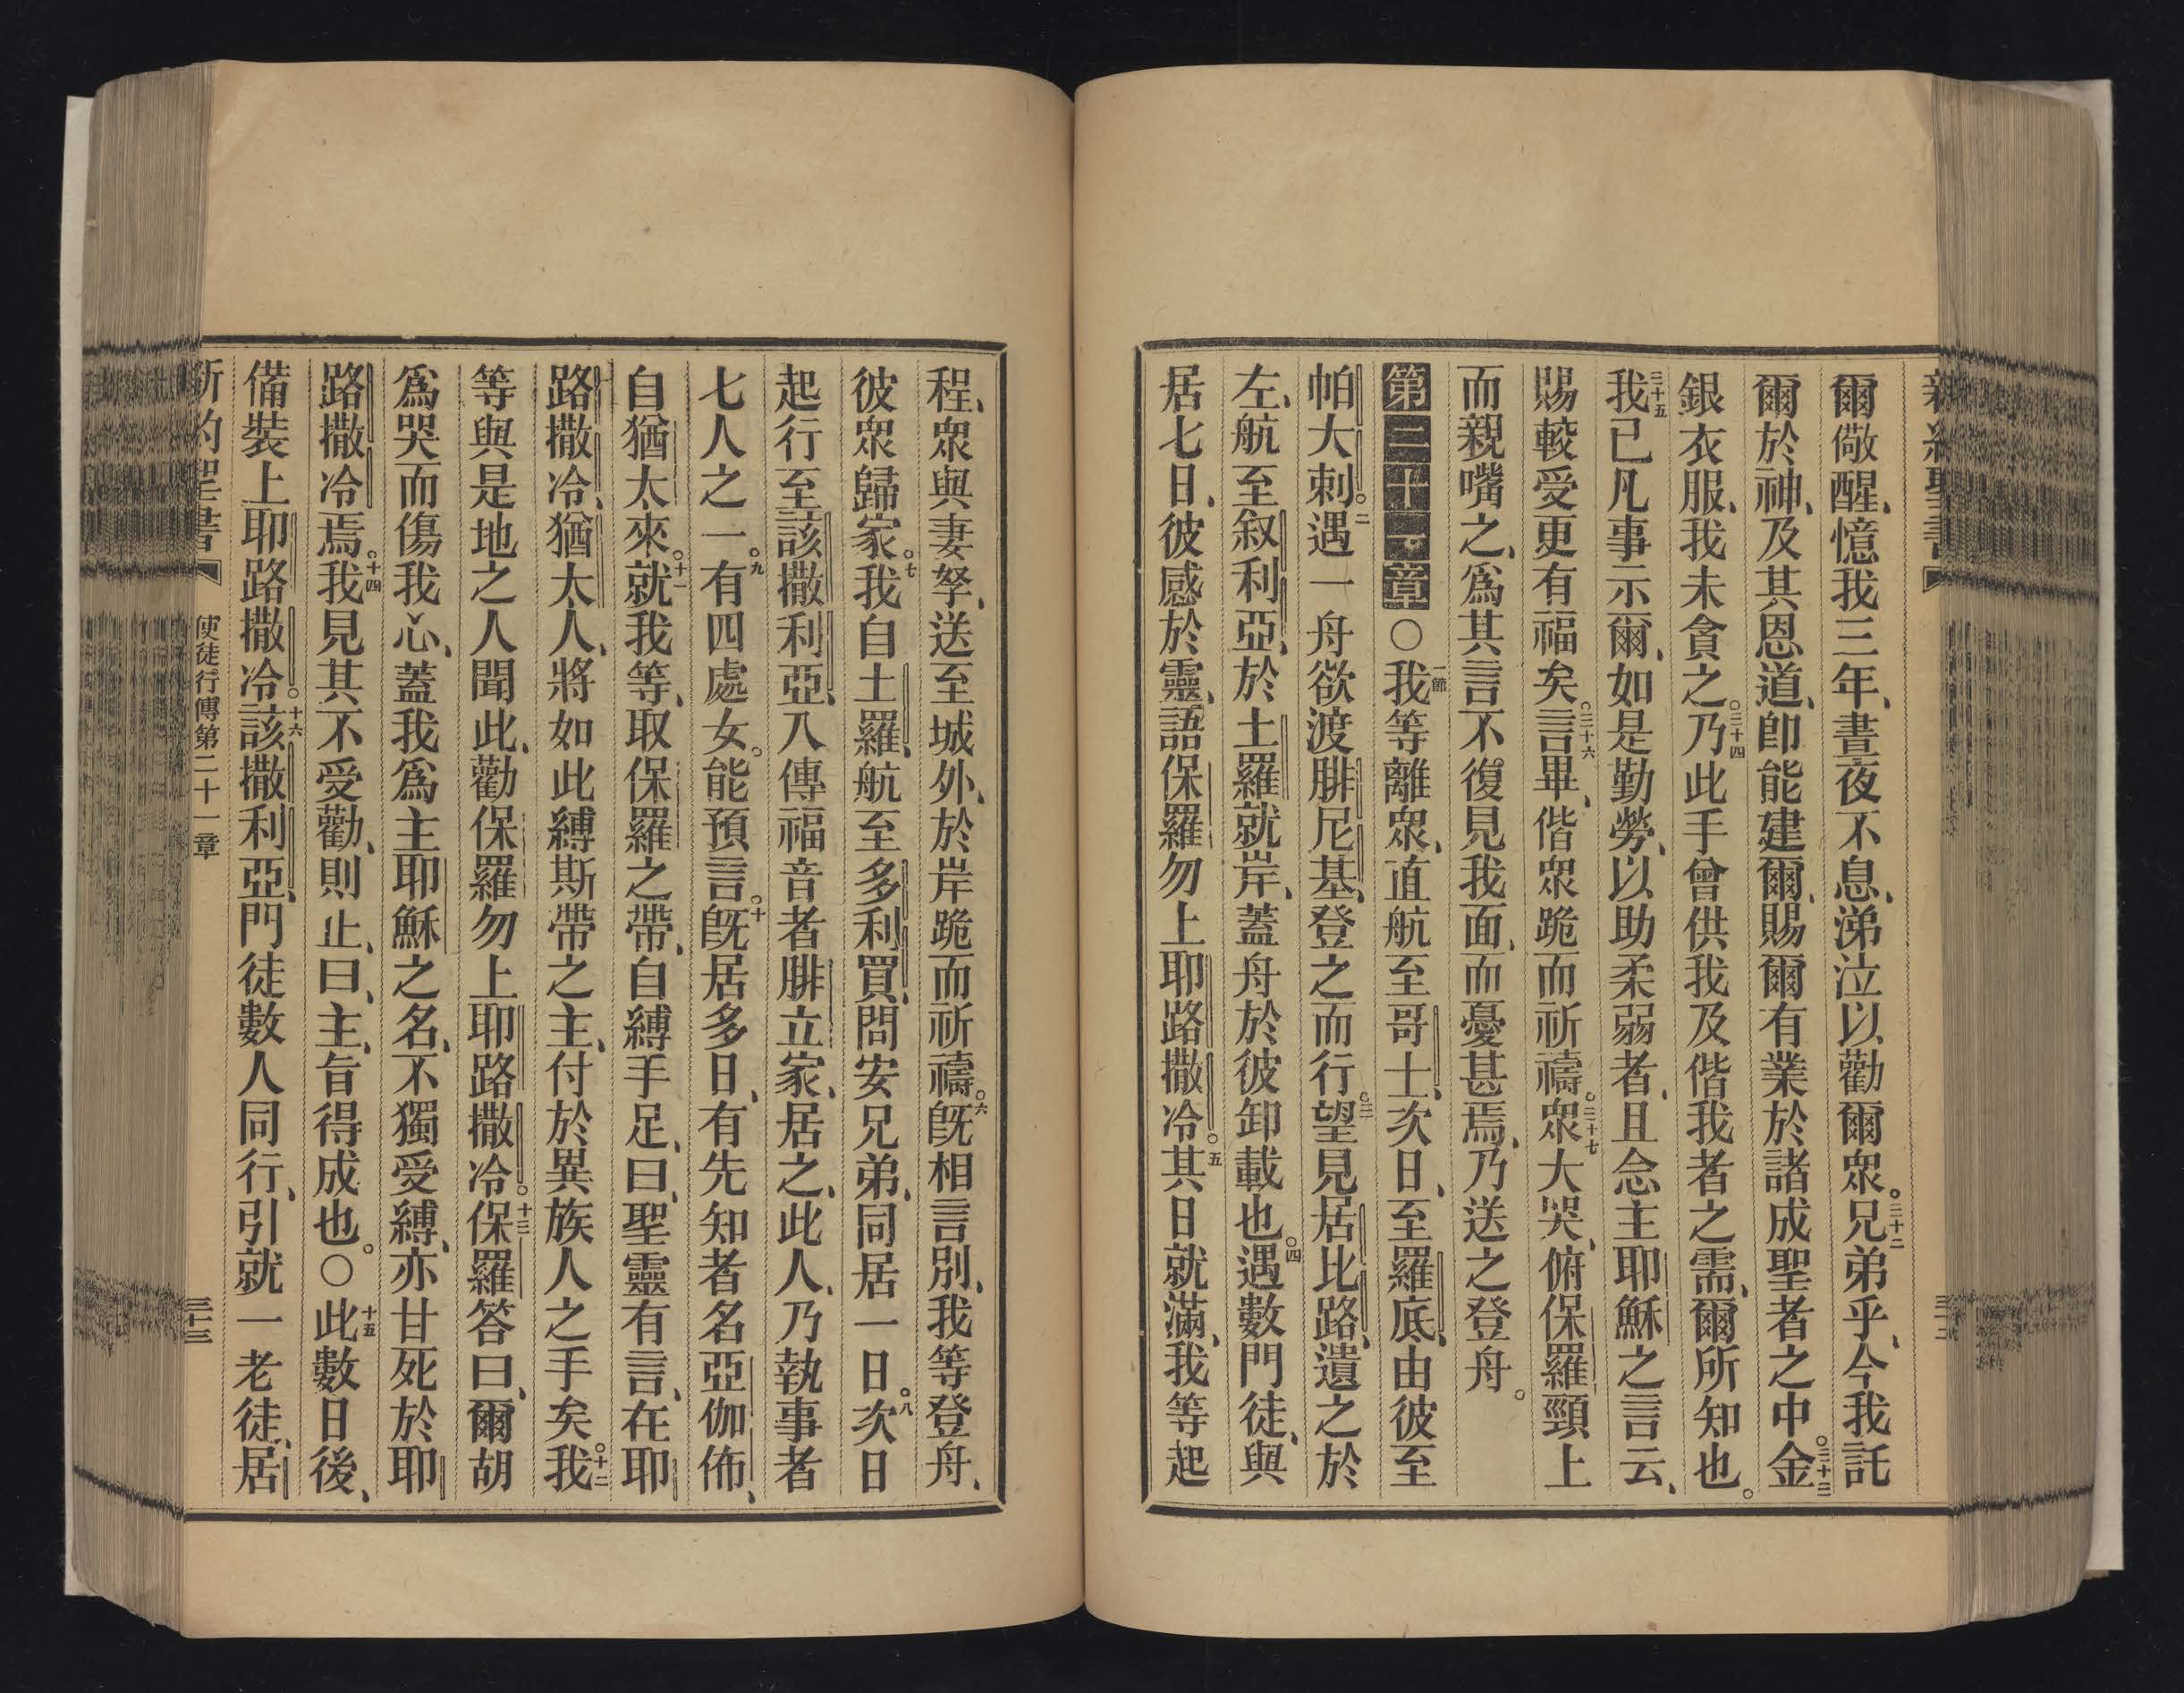 爾儆醒、憶我三年、晝夜不息、涕泣以勸爾眾。三十二兄弟乎、今我託
爾於神、及其恩道、卽能建爾、賜爾有業於諸成聖者之中。三十三金
銀衣服、我未貪之。三十四乃此手曾供我及偕我者之需、爾所知也。
三十五我已凡事示爾、如是勤勞、以助柔弱者、且念主耶穌之言云、
賜較受更有福矣。三十六言畢、偕眾跪而祈禱。三十七眾大哭、俯保羅頸上
而親嘴之、爲其言不復見我面、而憂甚焉、乃送之登舟。
第二十一章〇一節我等離眾、直航至哥士、次日、至羅底、由彼至
帕大剌。二遇一舟欲渡腓尼基、登之而行。三望見居比路、遺之於
左、航至叙利亞、於土羅就岸、蓋舟於彼卸載也。四遇數門徒、與
居七日、彼感於靈、語保羅勿上耶路撒冷。五其日就滿、我等起
程、眾與妻孥、送至城外、於岸跪而祈禱。六旣相言別、我等登舟、
彼眾歸家。七我自土羅、航至多利買、問安兄弟、同居一日。八次日
起行至該撒利亞、入傳福音者腓立家、居之、此人、乃執事者
七人之一。九有四處女。能預言。十旣居多日、有先知者名亞伽佈、
自猶太來。十一就我等、取保羅之帶、自縛手足、曰、聖靈有言、在耶
路撒冷、猶太人、將如此縛斯帶之主、付於異族人之手矣。十二我
等與是地之人聞此、勸保羅勿上耶路撒冷。十三保羅答曰、爾胡
爲哭而傷我心、蓋我爲主耶穌之名、不獨受縛、亦甘死於耶
路撒冷焉。十四我見其不受勸、則止、曰、主、旨得成也。〇十五此數日後、
備裝上耶路撒冷。十六該撒利亞、門徒數人同行、引就一老徒、居
新約聖書 使徒行傳第二十一章 三十三